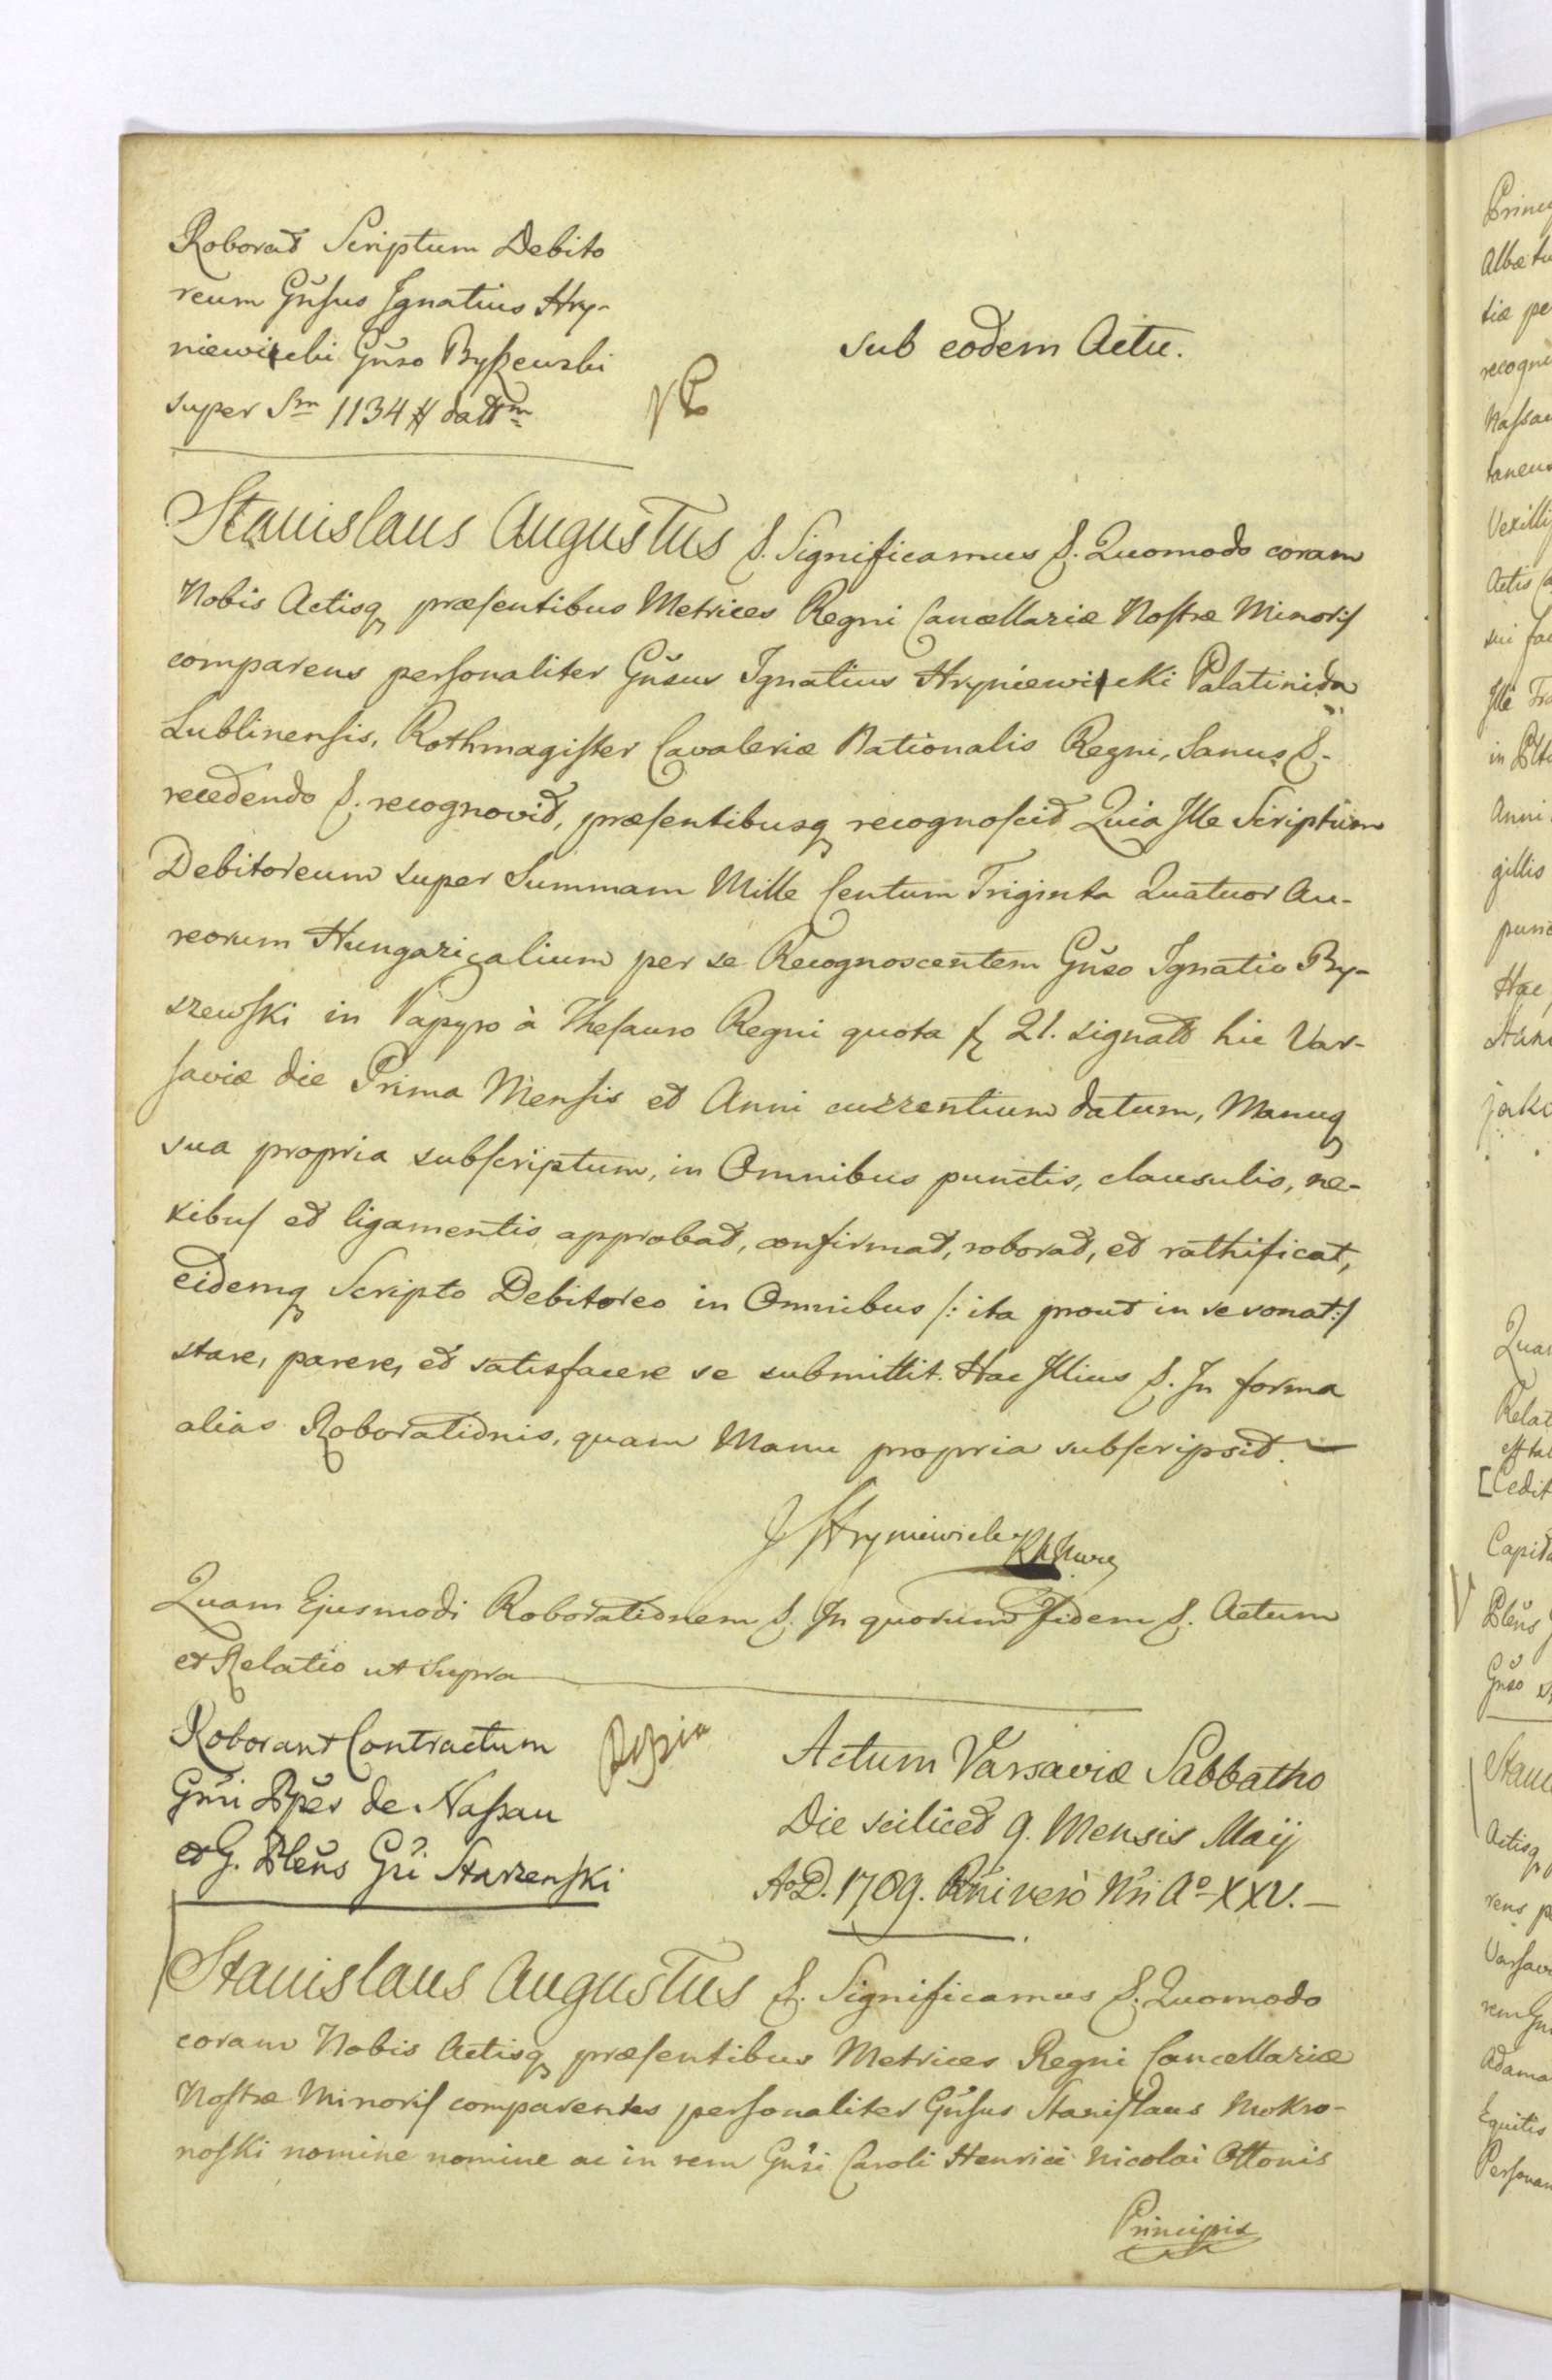 Roborat Scriptum Debito
reum Gnsus Ignatius Hry-
niewiecki Gnso Byszewski
super Sm 1134 # dattm
sub eodem Actu.
Stanislaus Augustus S. Significamus S. Quomodo coram
Nobis Actisq præsentibus Metrices Regni Cancellariæ Nostræ Minoris
comparens personaliter Gnsus Ignatius Hryniewiecki Palatinida
Lublinensis, Rothmagister Cavaleriæ Nationalis Regni, Sanus S.
recedendo S. recognovit, præsentibusq recognoscit Quia Ille Scriptum
Debitoreum super Summam Mille Centum Triginta Quatuor Au-
reorum Hungaricalium per se Recognoscentem Gnso Ignatio By-
szewski in Papyro à Thesauro Regni quota fl 21. signatt hic Var-
saviæ die Prima Mensis et Anni currentium datum, Manuq
sua propria subscriptum, in Omnibus punctis, clausulis, ne-
xibus et ligamentis approbat, confirmat, roborat, et rathificat,
eidemq Scripto Debitoreo in Omnibus /: ita prout in se sonat :/
stare, parere, et satisfacere se submittit. Hac Illius S. In forma
alias Roborationis, quam Manu propria subscripsit. —
J Hryniewiecki
Quam Ejusmodi Roborationem S. In quorum Fidem S. Actum
et Relatio ut Supra
Roborant Contractum
Gnsi Ppes de Nassau
et G. Plens Gsi Starzenski
Actum Varsaviæ Sabbatho
Die scilicet 9. Mensis Maij
AoD. 1789. Rni vero Nri Ao XXV. —
Stanislaus Augustus S. Significamus S. Quomodo
coram Nobis Actisq præsentibus Metrices Regni Cancellariæ
Nostræ Minoris comparentes personaliter Gnsus Stanislaus Mokro-
noski nomine nomine ac in rem Gnsi Caroli Henrici Nicolai Ottonis
Principis